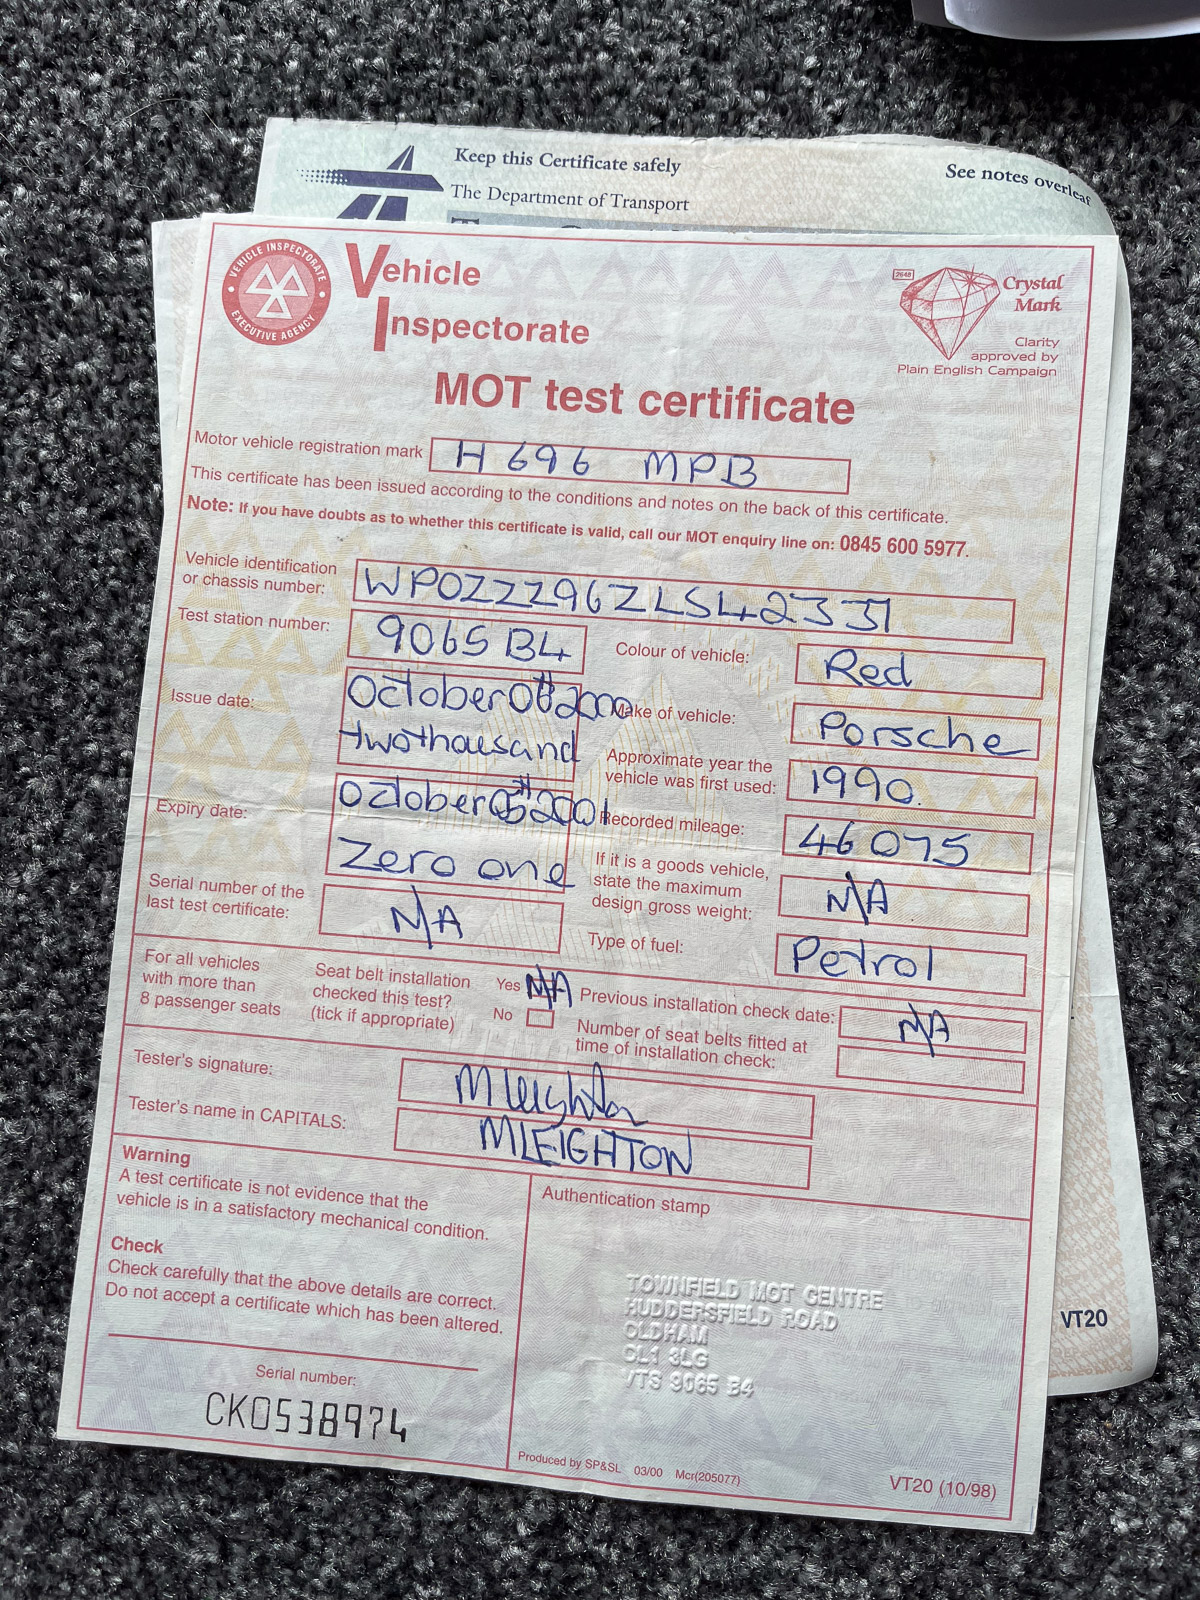 Keep this Certificate safely
See notes overleaf
The Department of Transport
VEHICLE INSPECTORATE
EXECUTIVE AGENCY
Vehicle
Inspectorate
2648
Crystal
Mark
Clarity
approved by
Plain English Campaign
MOT test certificate
Motor vehicle registration mark H 696 MPB
This certificate has been issued according to the conditions and notes on the back of this certificate.
Note: If you have doubts as to whether this certificate is valid, call our MOT enquiry line on: 0845 600 5977.
Vehicle identification
or chassis number: WPOZZZ96ZLS42331
Test station number: 9065 B4
Colour of vehicle: Red
Issue date: October 2000
twothousand
Make of vehicle: Porsche
Approximate year the
vehicle was first used: 1990.
Expiry date: October 2001
Zero one
Recorded mileage: 46075
If it is a goods vehicle,
state the maximum
design gross weight: N/A
Serial number of the
last test certificate: N/A
Type of fuel: Petrol
For all vehicles
with more than
8 passenger seats
Seat belt installation
checked this test?
(tick if appropriate)
Yes N/A
No
Previous installation check date: N/A
Number of seat belts fitted at
time of installation check:
Tester's signature: M Leighton
Tester's name in CAPITALS: MLEIGHTON
Warning
A test certificate is not evidence that the
vehicle is in a satisfactory mechanical condition.
Check
Check carefully that the above details are correct.
Do not accept a certificate which has been altered.
Serial number:
CK0538974
Authentication stamp
TOWNFIELD MOT CENTRE
HUDDERSFIELD ROAD
OLDHAM
OL1 3LG
VTS 9065 B4
Produced by SP&SL 03/00 Mcr(205077)
VT20 (10/98)
VT20